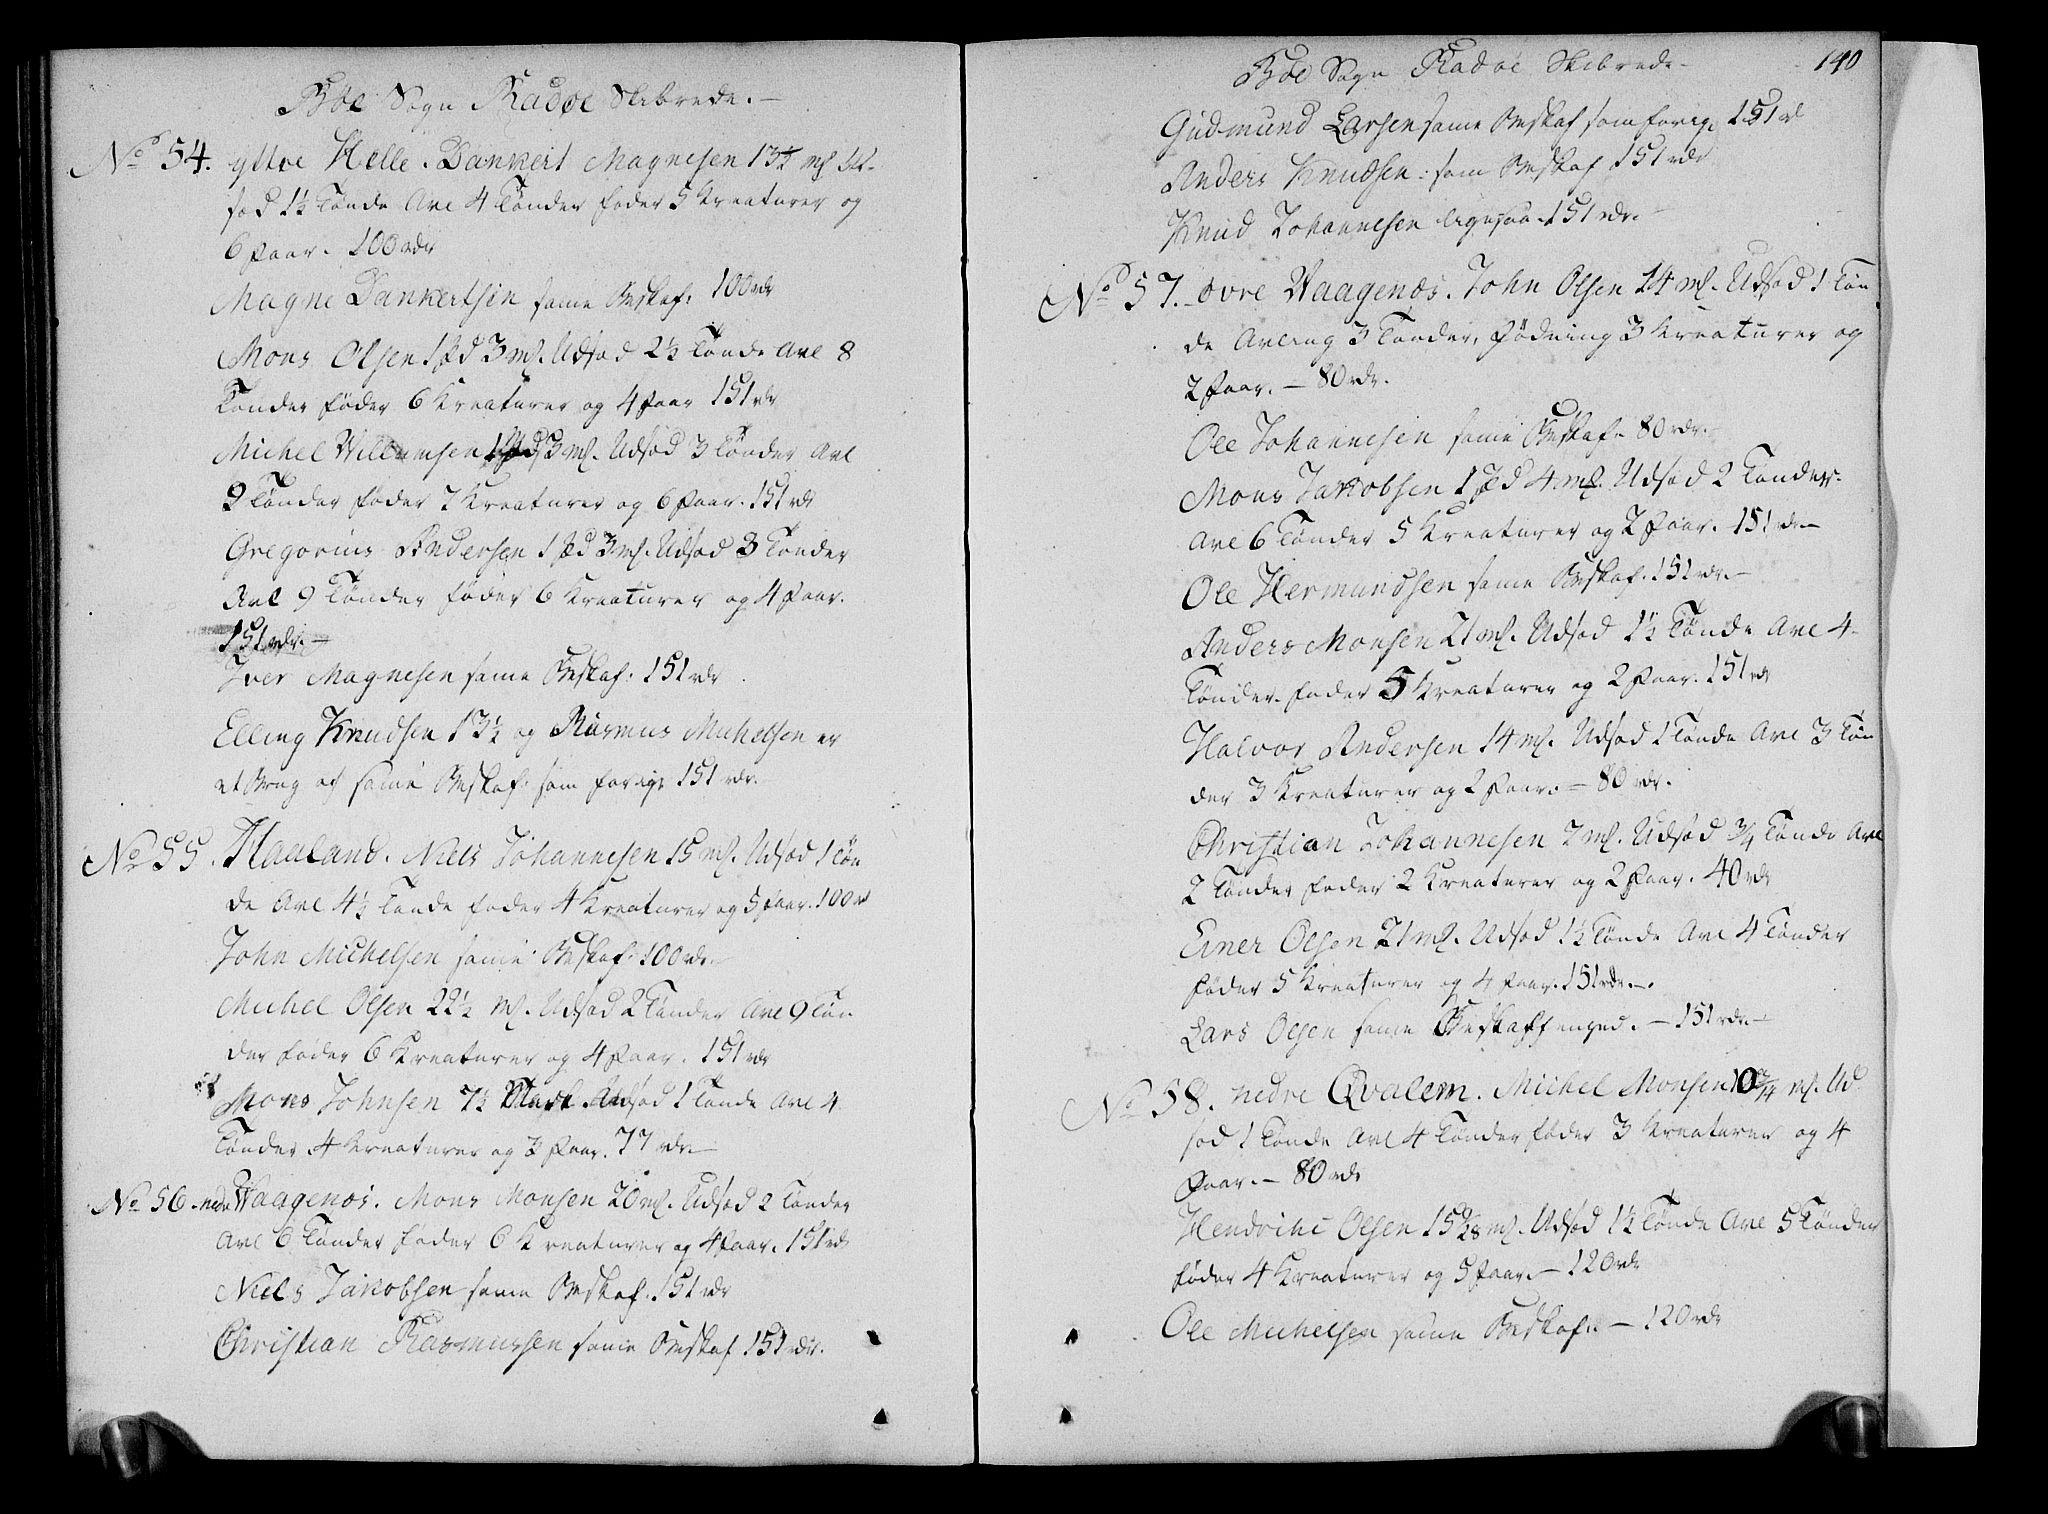 Bøe Sogn Radøe Skibrede.-
No 54. yttre Helle. Dankert Magnesen 13½ mk Ud-
sæd 1½ Tønde Avl 4 Tønder føder 5 Kreaturer og
6 Faar. 100 rdr
Magne Dankertsen same Beskaf: 100 rdr
Mons Olsen 1 pd 3 mk. Udsæd 2½ Tønde Avl 8
Tønder føder 6 Kreaturer og 4 Faar 151 rdr
Michel Willumsen 1 pd 3 mk. Udsæd 3 Tønder Avl
9 Tønder føder 7 Kreaturer og 6 Faar. 151 rdr
Gregorius Andersen 1 pd 3 mk. Udsæd 3 Tønder
Avl 9 Tønder føder 6 Kreaturer og 4 Faar.
151 rdr.-
Iver Magnesen same Beskaf: 151 rdr
Elling Knudsen 13½ og Rasmus Michelsen er
et Brug af same Beskaf: som forige 151 rdr.
No 55. Hauland. Niels Johannesen 15 mk. Udsæd 1 Tøn
de Avl 4½ Tønde føder 4 Kreaturer og 5 Faar. 100 rd
John Michelsen same Beskaf: 100 rdr.-
Michel Olsen 22½ mk. Udsæd 2 Tønder Avl 9 Tøn
der føder 6 Kreaturer og 4 Faar. 151 rdr
Mons Johnsen 7½ Mark Udsæd 1 Tønde Avl 4
Tønder 4 Kreaturer og 3 Faar. 77 rdr.-
No 56. nedre Waagenæs. Mons Monsen 20 mk. Udsæd 2 Tønder
Avl 6 Tønder føder 6 Kreaturer og 4 Faar. 151 rdr
Niels Jakobsen same Beskaf. 151 rdr
Christian Rasmussen same Beskaf 151 rdr.
140
Bøe Sogn Radøe Skibrede-
Gudmund Larsen same Beskaf som forige 151 rd
Anders Knudsen: som Beskaf 151 rdr
Knud Johannesen ligesaa. 151 rdr.-
No 57. øvre Waagenæs. John Olsen 14 mk. Udsæd 1 Tøn
de Avling 3 Tønder, fødning 3 Kreaturer og
2 Faar. - 80 rdr.
Ole Johannesen same Beskaf. 80 rdr.-
Mons Jakobsen 1 pd 4 mk. Udsæd 2 Tønder.
Avl 6 Tønder 5 Kreaturer og 2 Faar. 151 rdr.-
Ole Hermundsen same Beskaf. 151 rdr.-
Anders Monsen 21 mk. Udsæd 1½ Tønde Avl 4-
Tønder. føder 5 Kreaturer og 2 Faar. 151 rdr
Halvor Andersen 14 mk. Udsæd 1 Tønde Avl 3 Tøn
der 3 Kreaturer og 2 Faar. - 80 rdr.
Christian Johannesen 7 mk. Udsæd ¾ Tønde Avl
2 Tønder føder 2 Kreaturer og 2 Faar. 40 rdr
Einer Olsen 21 mk. Udsæd 1½ Tønde Avl 4 Tønder
føder 5 Kreaturer og 4 Faar. 151 rdr.-.
Lars Olsen same Beskaffenhed. - 151 rdr.-
No 58. nedre Qvalem. Michel Monsen 10¾ mk. Ud
sæd 1 Tønde Avl 4 Tønder føder 3 Kreaturer og 4
Faar. - 80 rdr
Hendrihc Olsen 15⅝ mk. Udsæd 1½ Tønde Avl 5 Tønder
føder 4 Kreaturer og 5 Faar. - 120 rdr
Ole Michelsen same Beskaf:. - 120 rdr